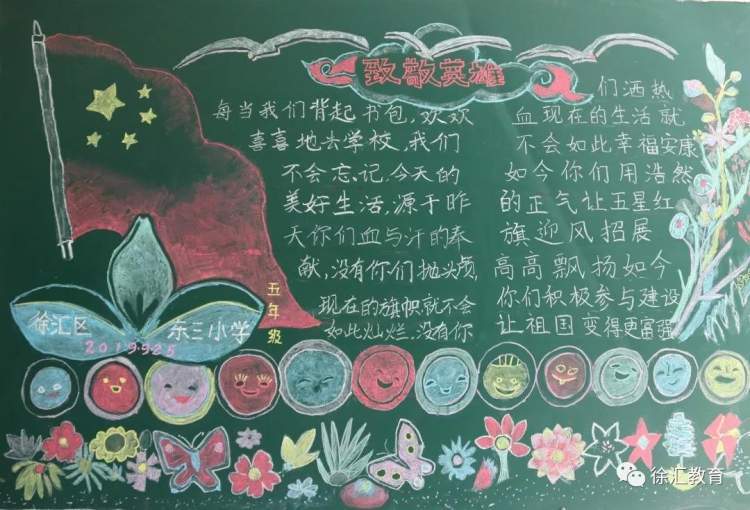 致敬英雄
每当我们背起书包，欢欢
喜喜地去学校，我们
不会忘记，今天的
美好生活，源于昨
天你们血与汗的奉
献，没有你们抛头颅，
现在的旗帜就不会
如此灿烂，没有你
们洒热
血现在的生活就
不会如此幸福安康
如今你们用浩然
的正气让五星红
旗迎风招展
高高飘扬如今
你们积极参与建设
让祖国变得更富强
五年级
徐汇区
东三小学
2019.9.25
徐汇教育